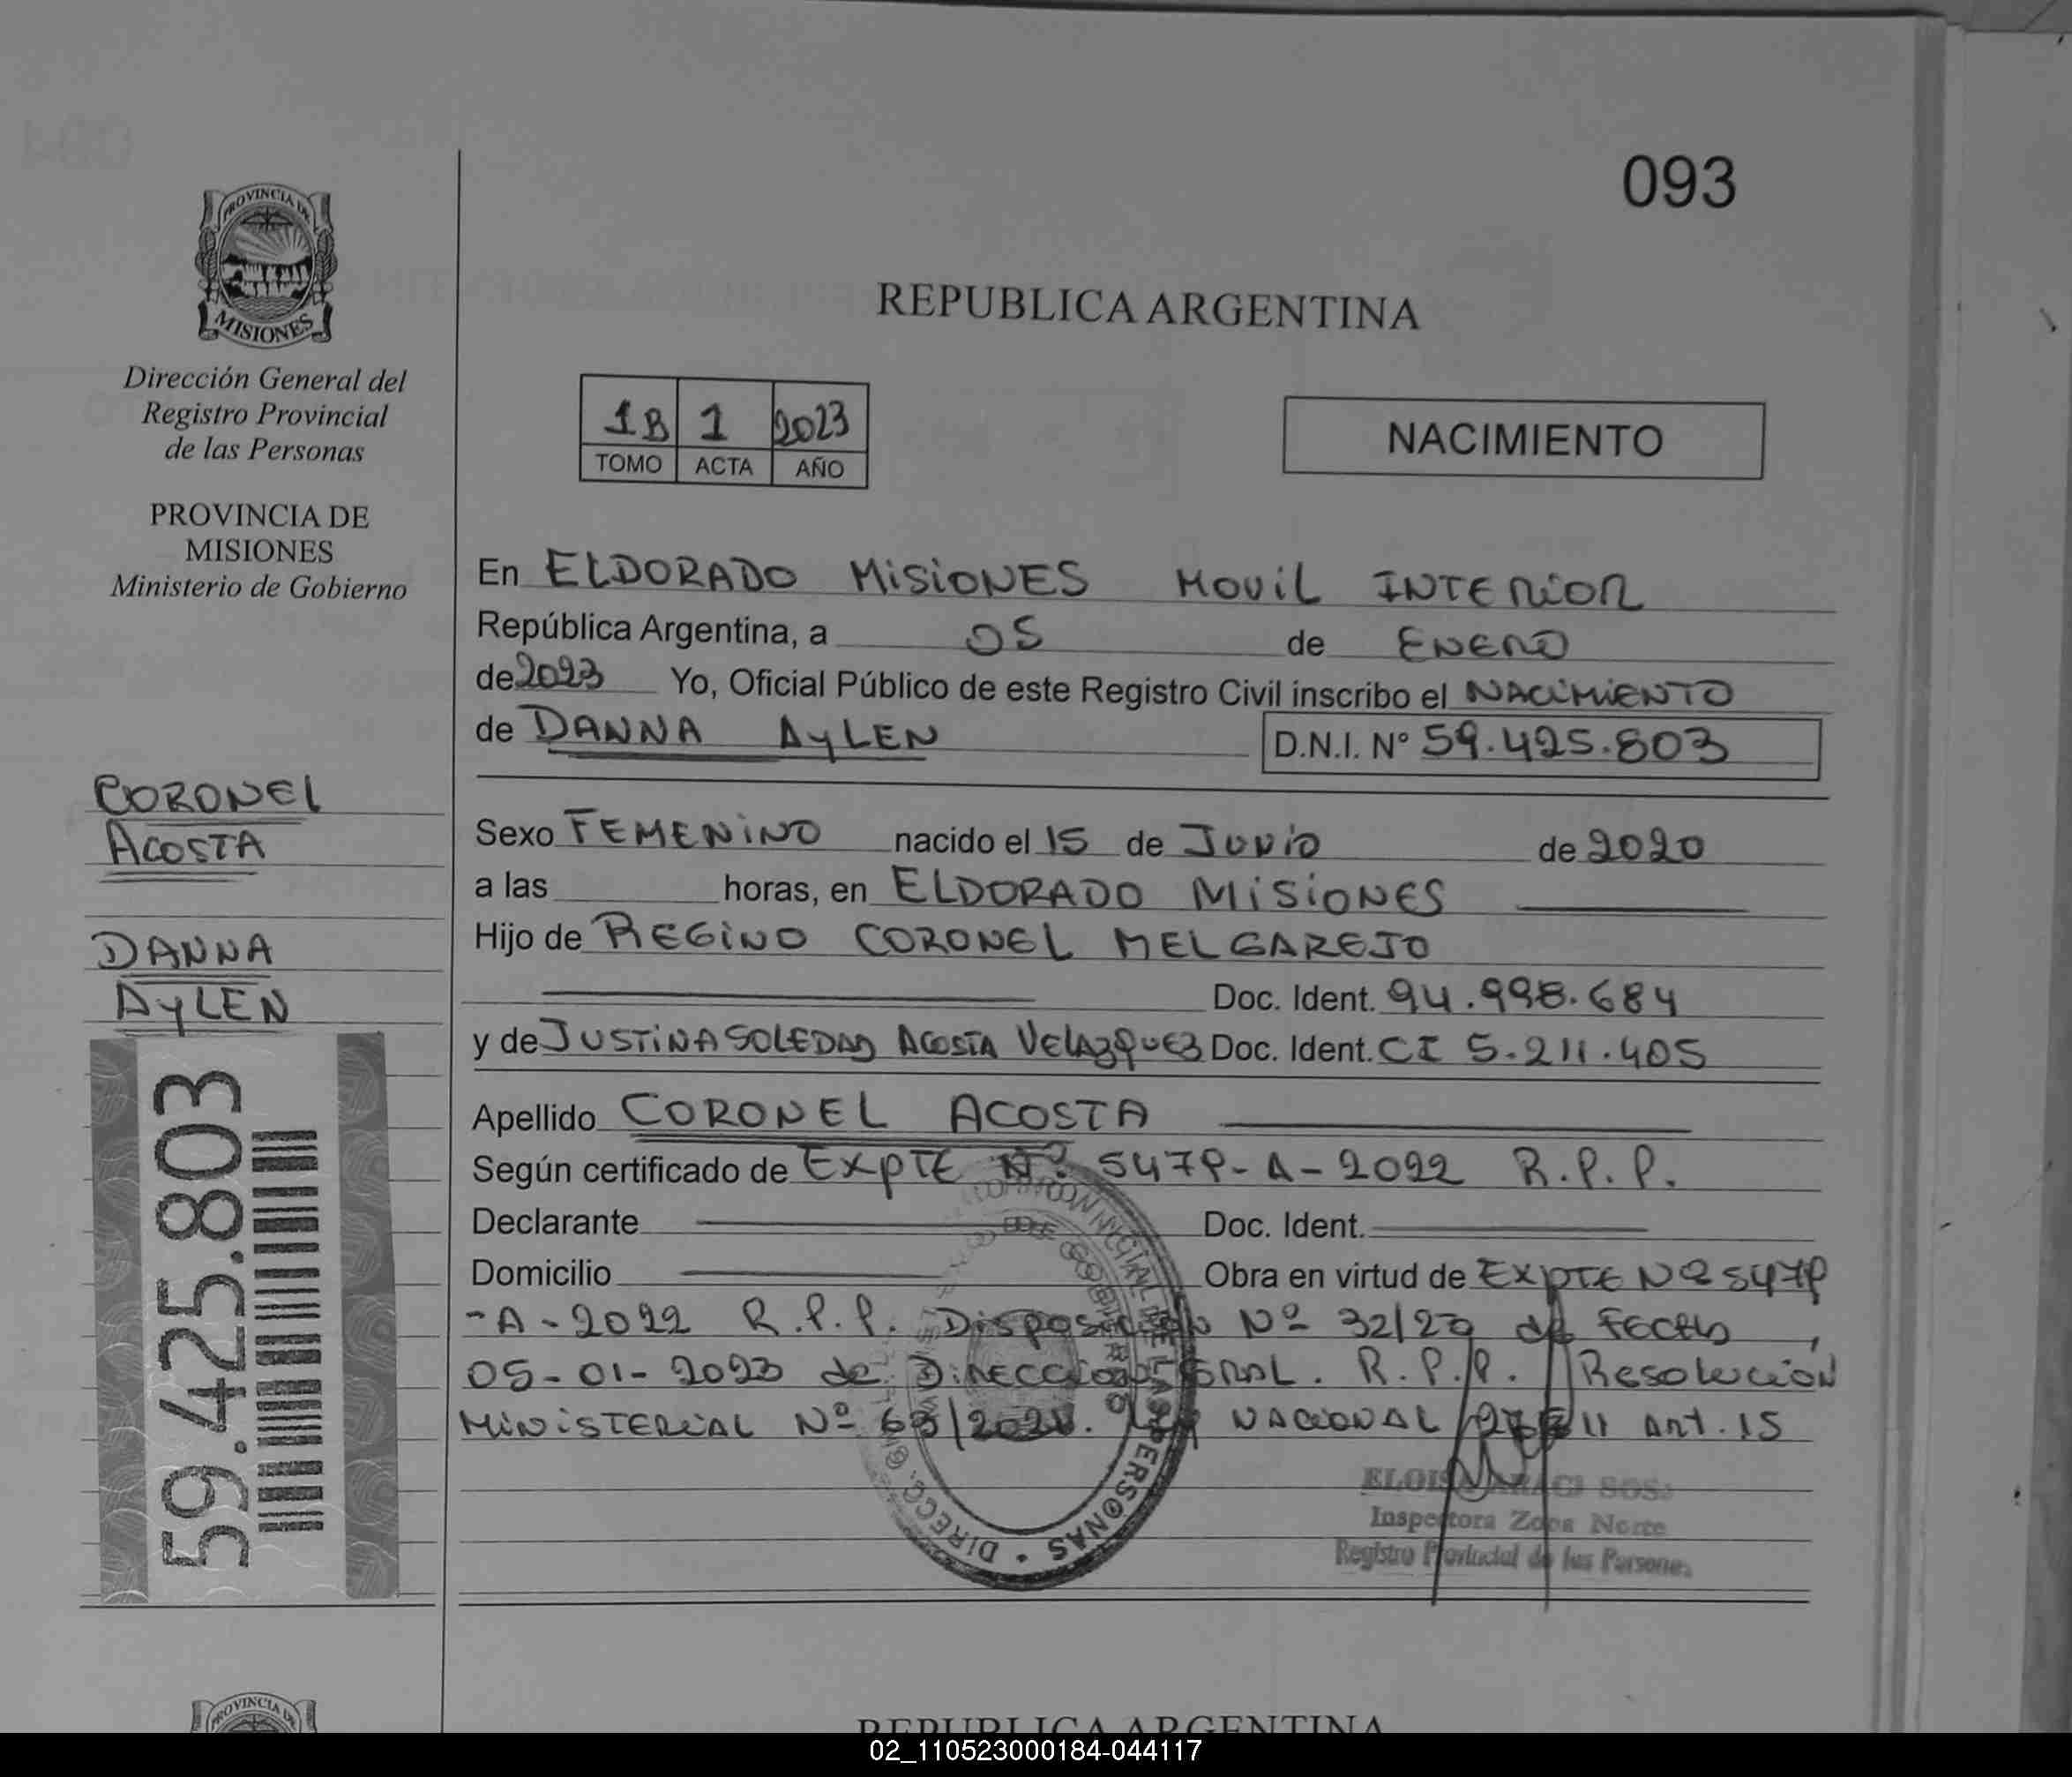 093
PROVINCIA DE
MISIONES
Dirección General del
Registro Provincial
de las Personas
PROVINCIA DE
MISIONES
Ministerio de Gobierno
REPUBLICA ARGENTINA
1B 1 2023
TOMO ACTA AÑO
NACIMIENTO
En ELDORADO MISIONES MOVIL INTERIOR
República Argentina, a 05 de ENERO
de 2023 Yo, Oficial Público de este Registro Civil inscribo el NACIMIENTO
de DANNA AYLEN D.N.I. N° 59.425.803
CORONEL
ACOSTA
DANNA
AYLEN
59.425.803
Sexo FEMENINO nacido el 15 de JUNIO de 2020
a las horas, en ELDORADO MISIONES
Hijo de REGINO CORONEL MELGAREJO
Doc. Ident. 94.998.684
y de JUSTINA SOLEDAD ACOSTA VELAZQUEZ Doc. Ident. CI 5.211.405
Apellido CORONEL ACOSTA
Según certificado de EXPTE Nº 5479-A-2022 R.P.P.
Declarante Doc. Ident.
Domicilio Obra en virtud de EXPTE Nº 5479
-A-2022 R.P.P. Disposición Nº 32/23 de FECHA,
05-01-2023 de DIRECCION GRAL. R.P.P. Resolución
MINISTERIAL Nº NACIONAL Art. 15
Inspectora Zona Norte
Registro Provincial de las Personas
REPUBLICA ARGENTINA
02_110523000184-044117